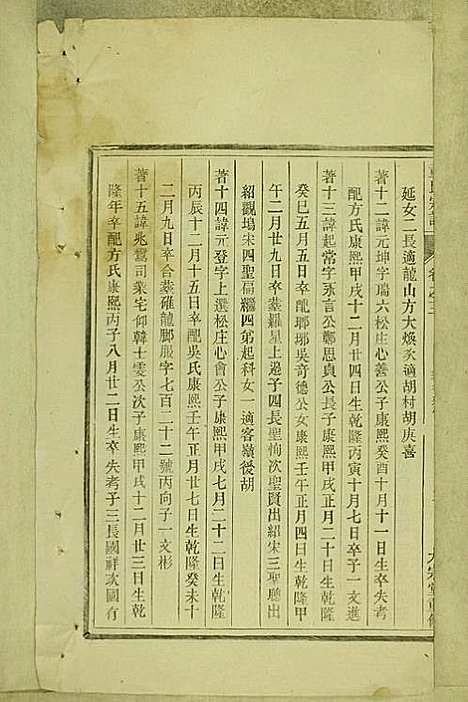 延女二長適龍山方大煥次適胡村胡庚喜
著十二諱元坤字瑞六松庄心善公子康熙癸酉十月十一日生卒失考
配方氏康熙甲戌十二月廿四日生乾隆丙寅十月七日卒子一文進
著十三諱起常字永言公鄭思貞公長子康熙甲戌正月二十日生乾隆
癸巳五月五日卒配瑯琊吳奇德公女康熙壬午正月四日生乾隆甲
午二月廿九日卒墓羅星上邊子四長聖恂次聖賢出紹宋三聖聽出
紹觀塢宋四聖 繼四弟起科女一適客嶺後胡
著十四諱元登字上選松庄心會公子康熙甲戌七月二十二日生乾隆
丙辰十二月十五日卒配吳氏康熙壬午正月廿七日生乾隆癸未十
二月九日卒合墓碓龍腳服字七百二十二號丙向子一文彬
著十五諱兆駕司業宅仰韓士雯公次子康熙甲戌十二月廿三日生乾
隆年卒配方氏康熙丙子八月廿二日生卒失考子三長國祥次國有